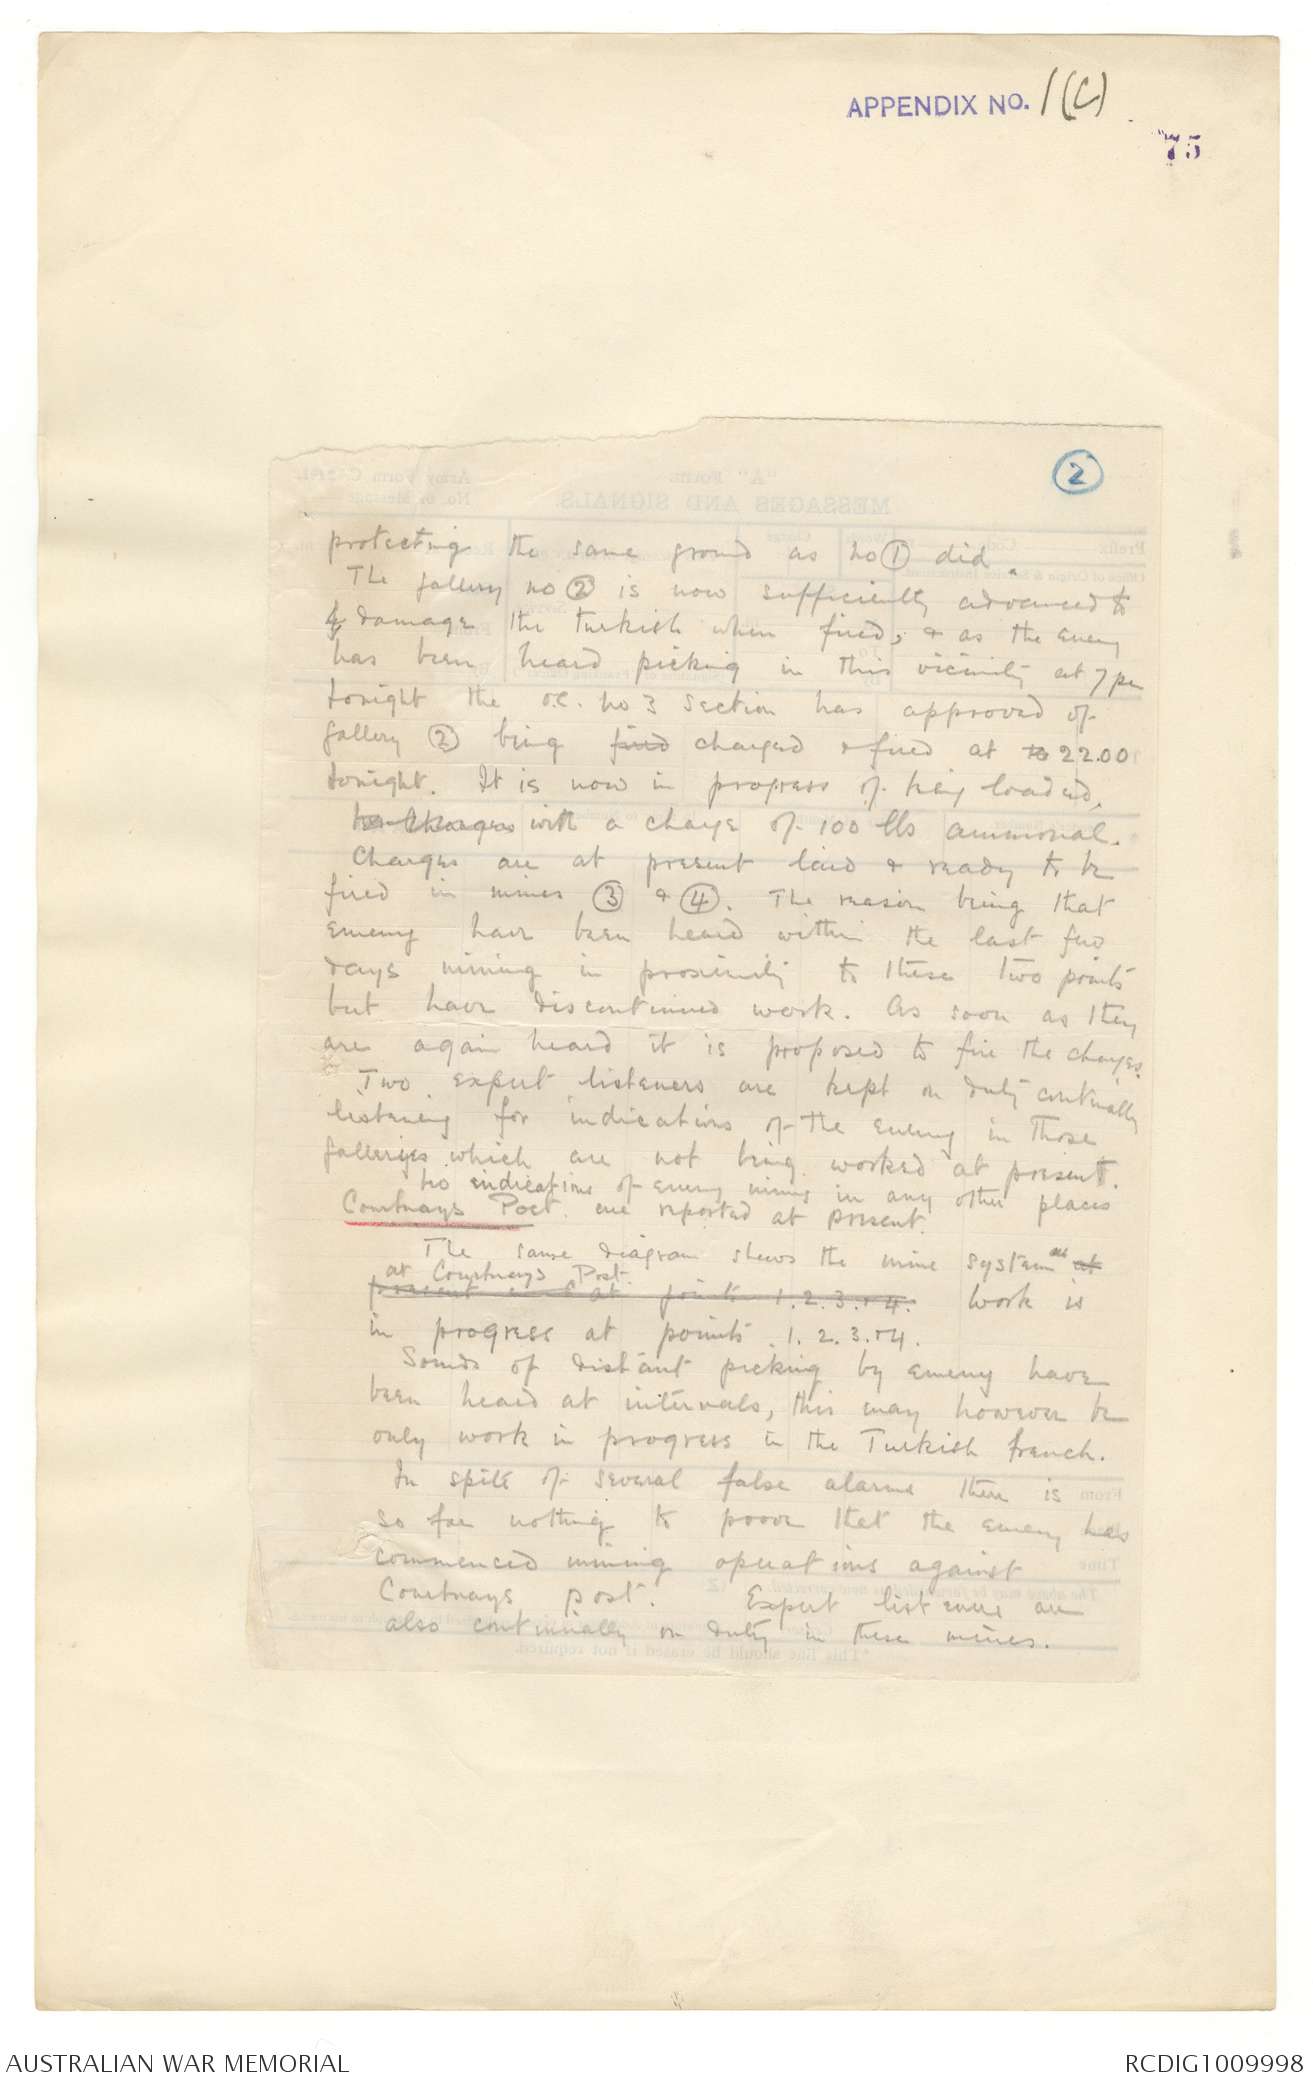 APPENDIX NO. 1(C)
75
2
protecting the same ground as no 1 did.
The gallery no 2 is now sufficiently advanced to
damage the Turkish when fired, & as the enemy
has been heard picking in this vicinity at 7 pm
tonight the o.c. no 3 section has approved of
gallery 2 being fired charged & fired at to 22.00
tonight. It is now in progress of being loaded,
with a charge of 100 lbs ammonal.
Charges are at present laid & ready to be
fired in mines 3 & 4. The reason being that
enemy have been heard within the last few
days mining in proximity to these two points
but have discontinued work. As soon as they
are again heard it is proposed to fire the charges.
Two expert listeners are kept on duty continually
listening for indications of the enemy in those
galleries which are not being worked at present.
No indications of enemy mines in any other places
are reported at present.
Courtnays Post.
The same diagram shews the mine system at
at Courtnays Post.
present at points 1.2.3.+4. Work is
in progress at points 1.2.3.+4.
Sounds of distant picking by enemy have
been heard at intervals, this may however be
only work in progress in the Turkish trench.
In spite of several false alarms there is
so far nothing to prove that the enemy has
commenced mining operations against
Courtnays post. Expert listeners are
also continually on duty in these mines.
AUSTRALIAN WAR MEMORIAL
RCDIG1009998